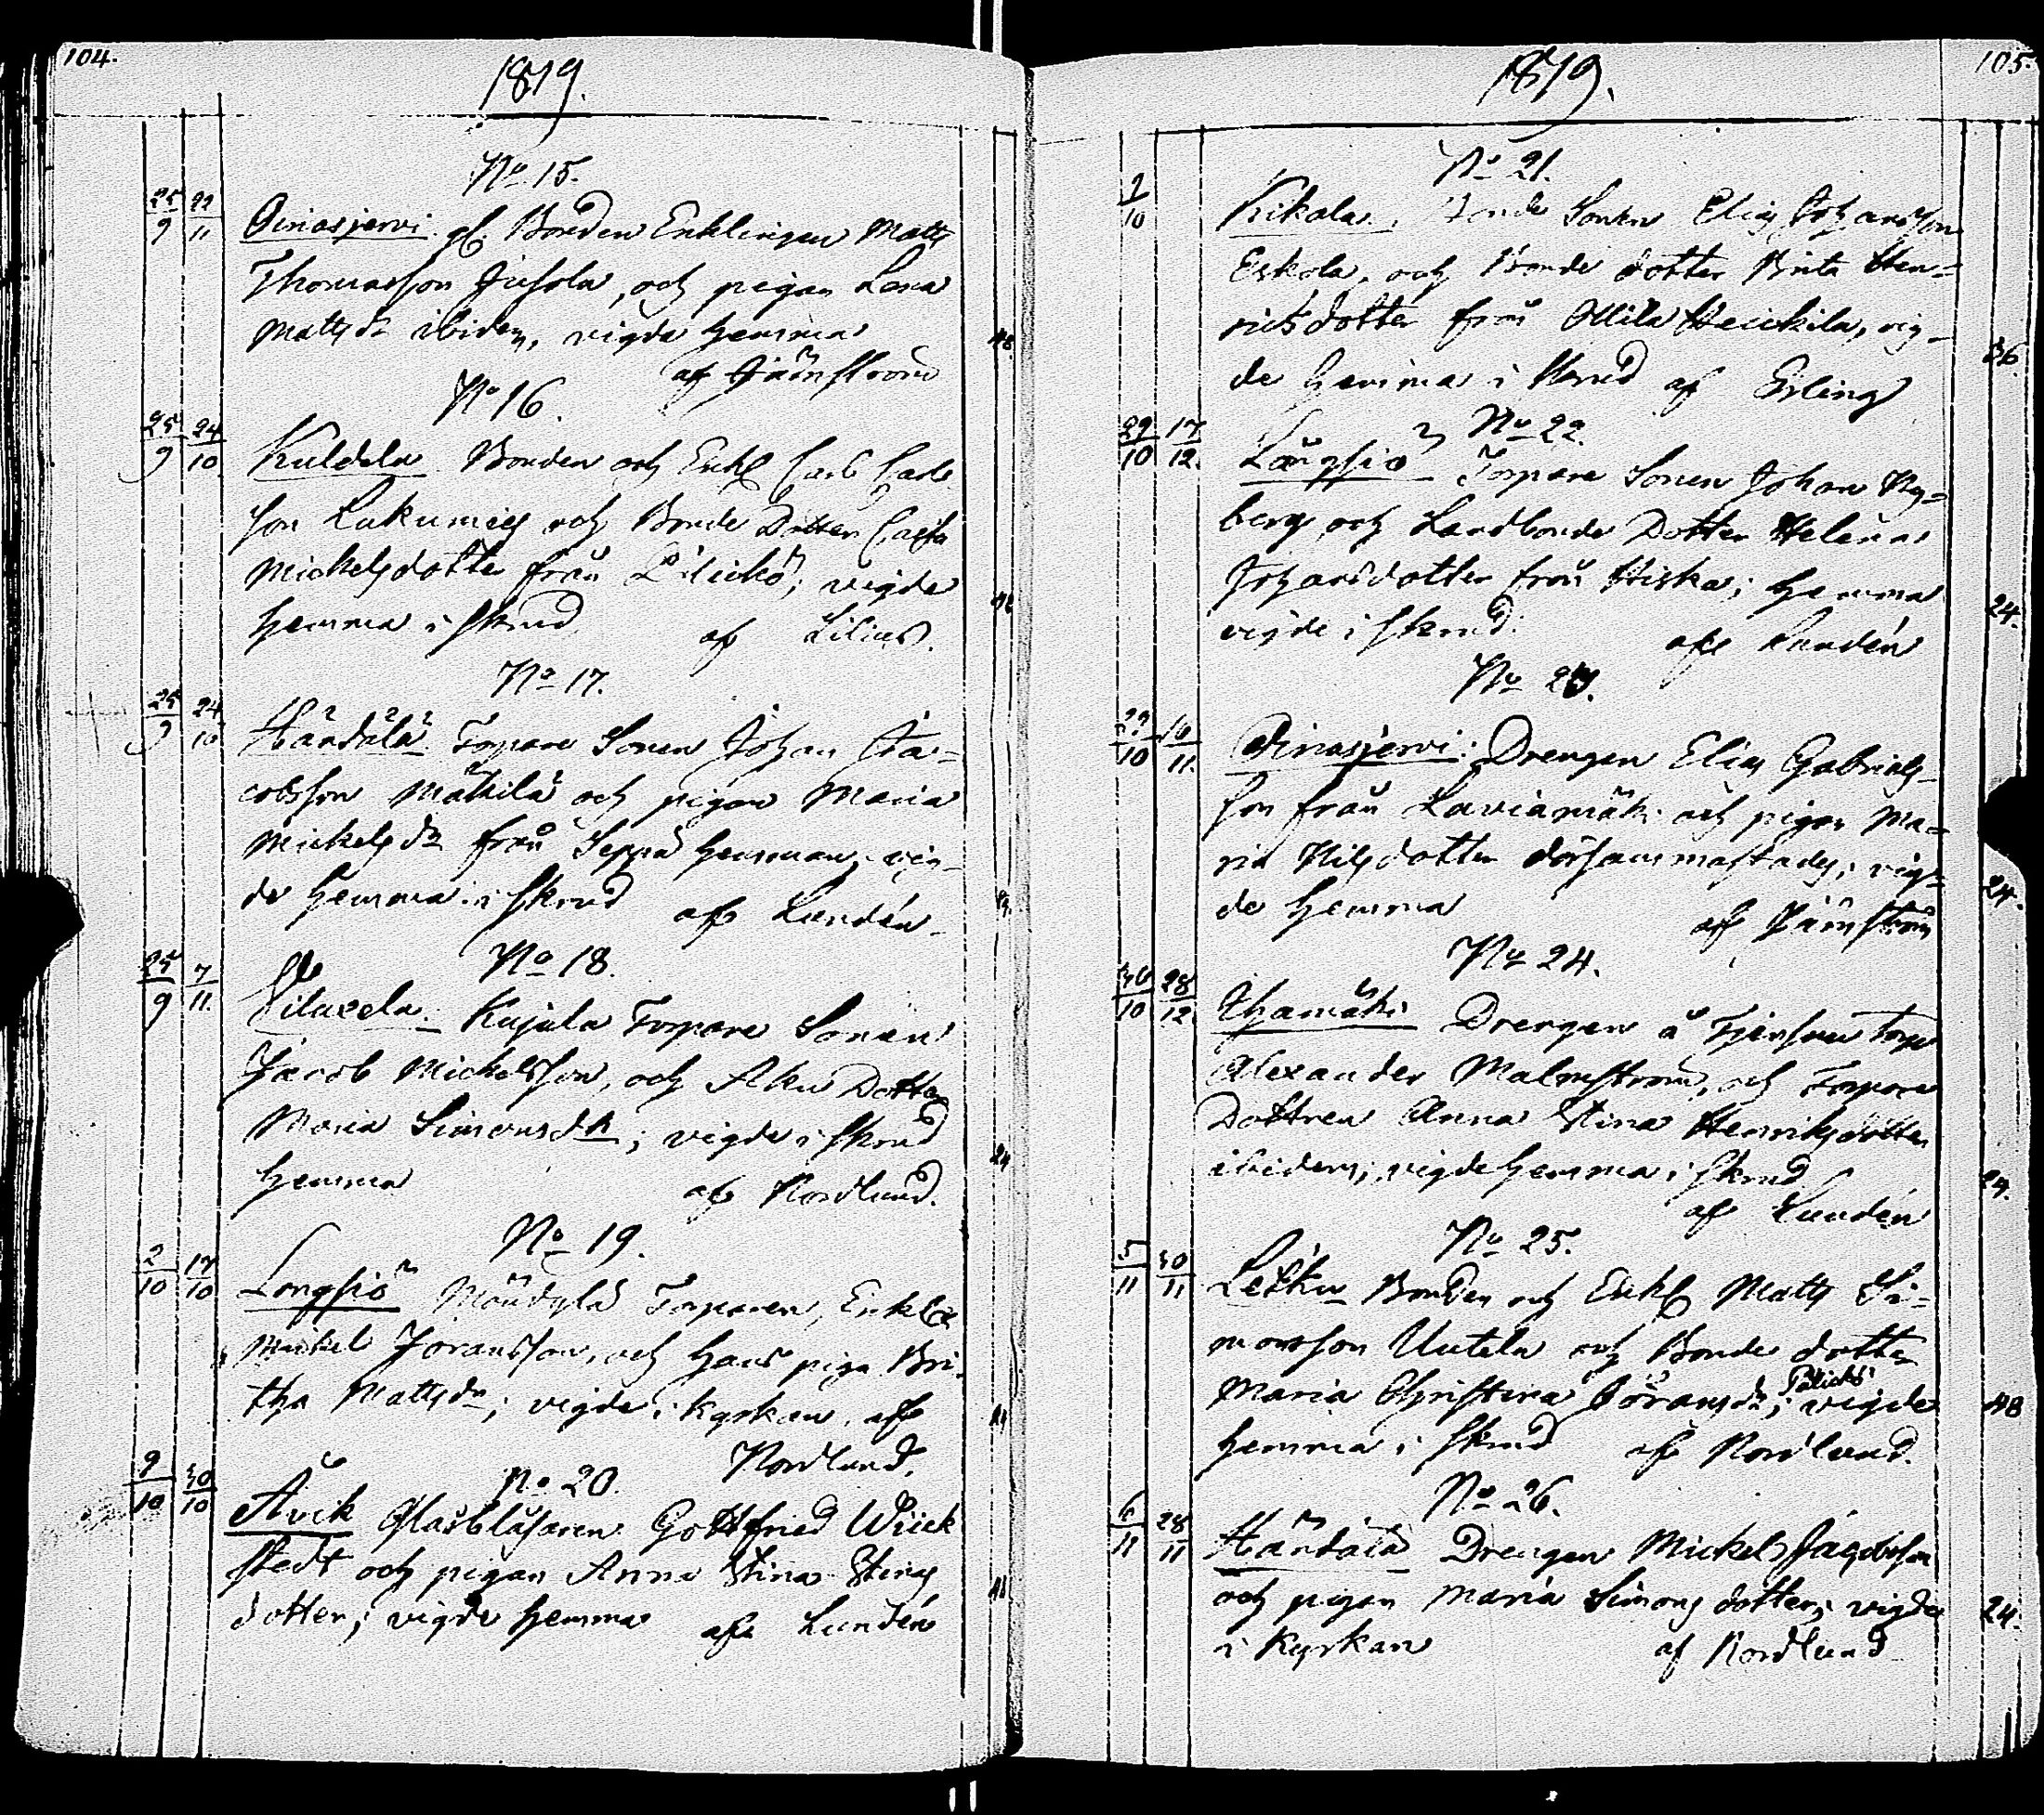 104.
1819.
No 15.
25/9 22/11 Oinasjervi. gl. Bonden Enklingen Matts
Thomasson Jusola, och pigan Lena
Mattsdr ibidem, vigde hemma
af Järnström
48.
No 16.
25/9 24/10 Kuldela Bonden och Enkl Carl Carls
son Lukumies och Bonde Dotter Caisa
Mickelsdotter från Pilichö; vigde
hemma i skrud af Lilius.
48
No 17.
25/9 24/10 Händälä Torpare Sonen Johan Ja=
cobsson Mäkilä och pigan Maria
Mickelsdr från Seppä hemman, vig-
de hemma i skrud af Lundén.
No 18.
25/9 7/11. Kujala Torpare Sonen
Jacob Mickelsson, och Aku Dotter
Maria Simonsdr; vigde i skrud
hemma af Nordlund.
24
No 19.
2/10 17/10 Longsiö Mändylä Torparen, Enkl
Mickel Joransson, och hans piga Bri-
tha Mattsdr; vigde i Kyrkan, af
Nordlund.
No 20.
9/10 30/10 Åvik Glasblåsaren Gottfried Wiick
stedt och pigan Anna Stina Stins
dotter; vigde hemma af Lundén
105.
1819.
No 21.
2/10 Kikala. Bonde Sonen Elias Johansson
Eskola, och Bonde dotter Brita Hen=
ricsdotter från Ollila Heickila, vig-
de hemma i skrud af Erling
36.
No 22.
29/10 17/12. Långsiö Torpare Sonen Johan Ny=
berg och Landbonde Dotter Helena
Johansdotter från Hiska; hemma
vigde i skrud. af Lundén
24.
No 23.
29/10 16/11. Oinasjervi: Drengen Elias Gabriels-
son från Laviamäki och pigan Ma=
ria Nilsdotter dersammastades; vig=
de hemma af Järnström
24.
No 24.
30/10 28/12 Ahamäki Drengen å Torp
Alexander Malmström, och Torpare
Dottren Anna Stina Henriksdotter
ibidem; vigde hemma i skrud
af Lundén
24.
No 25.
5/11 30/11 Letku Bonden och Enkl Matts Si-
monsson Uutela och Bonde dotter
Maria Christina Jöransdr; Pilichö vigde
hemma i skrud af Nordlund.
48
No 26.
6/11 28/11 Händälä Drengen Mickel Jacobsson
och pigan Maria Simons dotter; vigde
i Kyrkan af Nordlund
24.